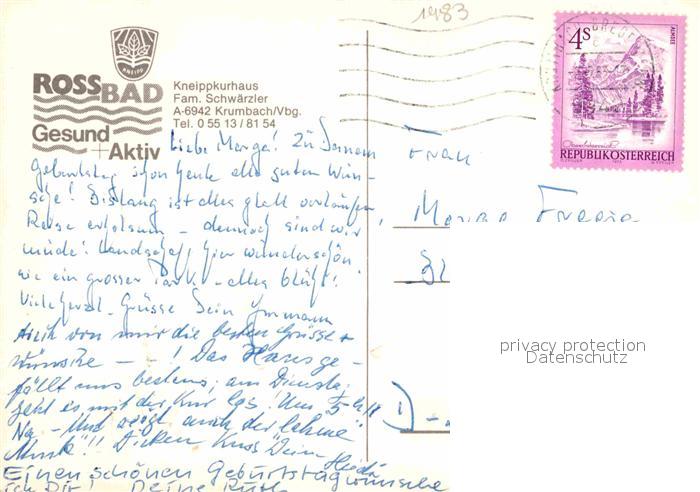 1983
KNEIPP
ROSSBAD
Gesund
+Aktiv
Kneippkurhaus
Fam. Schwärzler
A-6942 Krumbach/Vbg.
Tel. 0 55 13 / 81 54
4S
ALMSEE
REPUBLIK ÖSTERREICH
Liebe Marga! Zu Deinem
Geburtstag schon heute alle guten Wün-
sche! Bislang ist alles glatt verlaufen,
Reise erholsam - dennoch sind wir
müde! Landschaft hier wunderschön,
wie ein grosser Park - alles blüht!
Viele herzl. Grüsse Dein
Auch von mir die besten Grüsse +
wünsche - - ! Das Haus ge-
fällt uns bestens, am Dienstag
geht es mit der Kur los! Um
Na - Und auch der lahme
Dicken Kuss Deine
Einen schönen Geburtstag wünsche
ich Dir! Deine Ruth
Frau
D-
privacy protection
Datenschutz